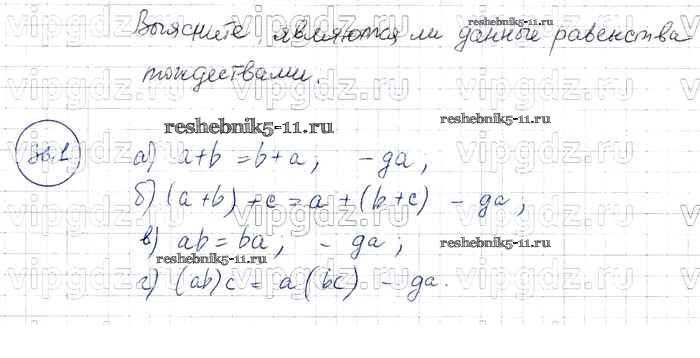 Выясните, являются ли данные равенства
тождествами.
reshebnik5-11.ru
reshebnik5-11.ru
reshebnik5-11.ru
36.1
а) a+b = b+a; - да;
б) (a+b)+c = a+(b+c) - да;
в) ab = ba; - да;
г) (ab)c = a(bc) - да.
reshebnik5-11.ru
reshebnik5-11.ru
reshebnik5-11.ru
vipgdz.ru vipgdz.ru vipgdz.ru
vipgdz.ru vipgdz.ru vipgdz.ru
vipgdz.ru vipgdz.ru vipgdz.ru
vipgdz.ru vipgdz.ru vipgdz.ru
vipgdz.ru vipgdz.ru vipgdz.ru